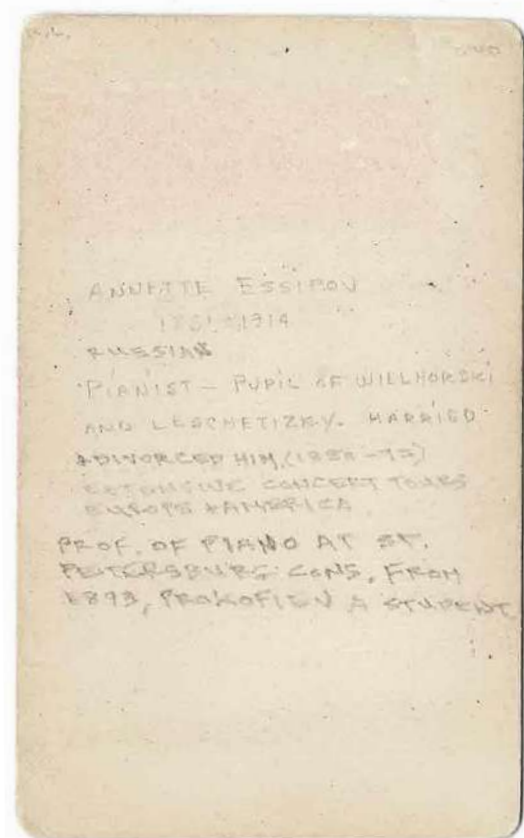 ANNETTE ESSIPOV
1851-1914
RUSSIAN
PIANIST - PUPIL OF WIELHORSKI
AND LESCHETIZKY. MARRIED
+ DIVORCED HIM, (1880-92)
EXTENSIVE CONCERT TOURS
EUROPE + AMERICA
PROF. OF PIANO AT ST.
PETERSBURG CONS, FROM
1893, PROKOFIEV A STUDENT